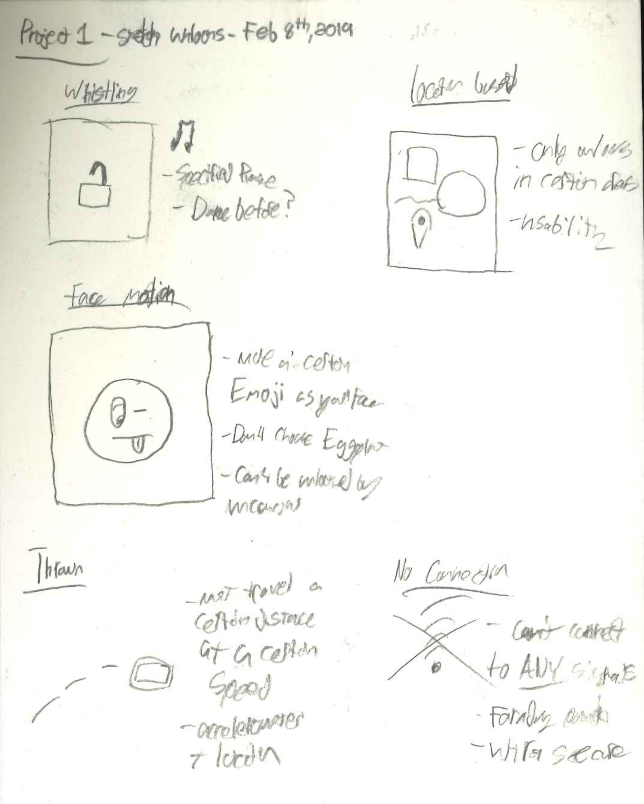 Project 1 - sketch unlocks - Feb 8th, 2019
Whistling
- Specified
- Done before?
Location based
- Only unlocks
in certain
- Usability
Face Motion
- certain
Emoji as your face
- Don't choose Eggplant
- Can't be unlocked by
Thrown
- must travel a
certain distance
at a certain
speed
- accelerometer
+ location
No Connection
- can't connect
to ANY signals
- Faraday